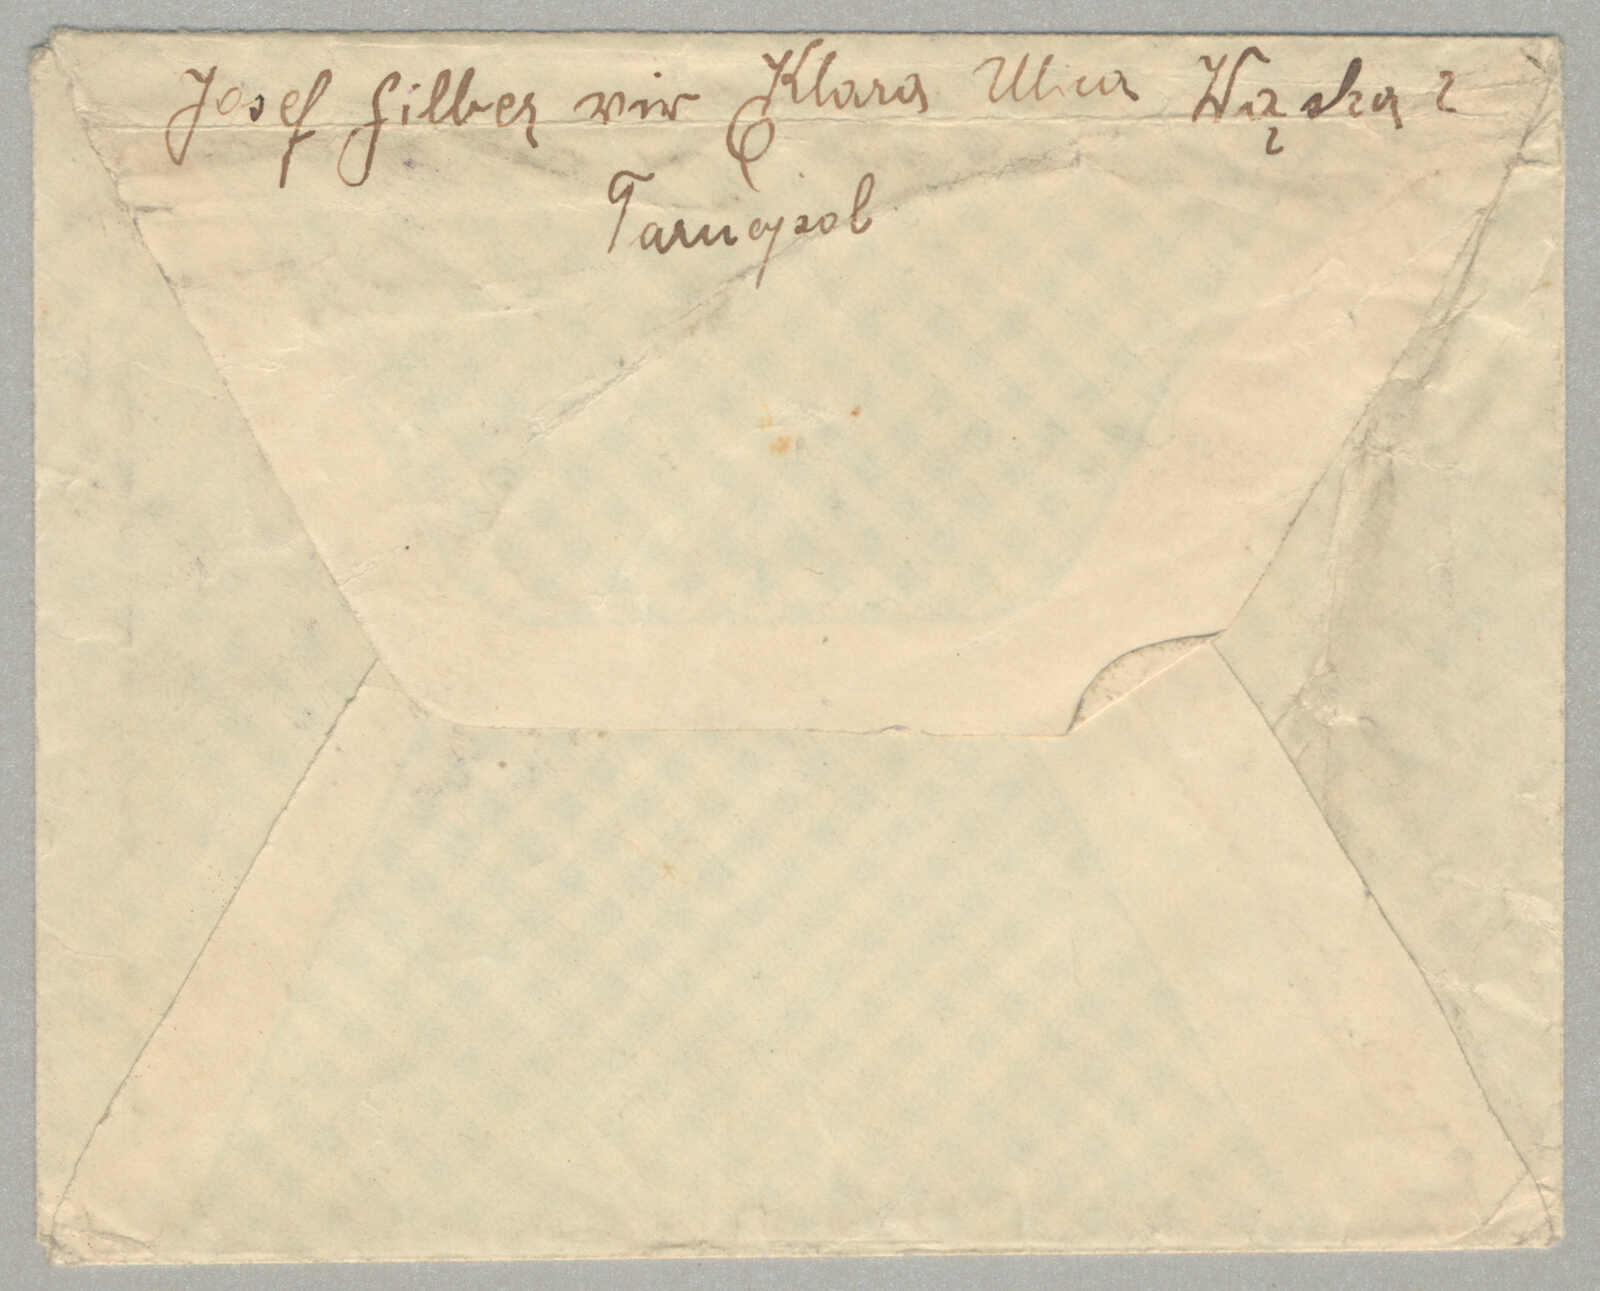 Josef Silber Klara Ulica Wąska 2
Tarnopol